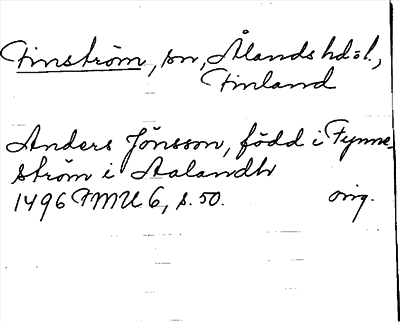 Finström, sn, Ålands hd o l.,
Finland
Anders Jönsson, född i Fynne-
ström i Aalandh
1496 FMU 6, s. 50. orig.